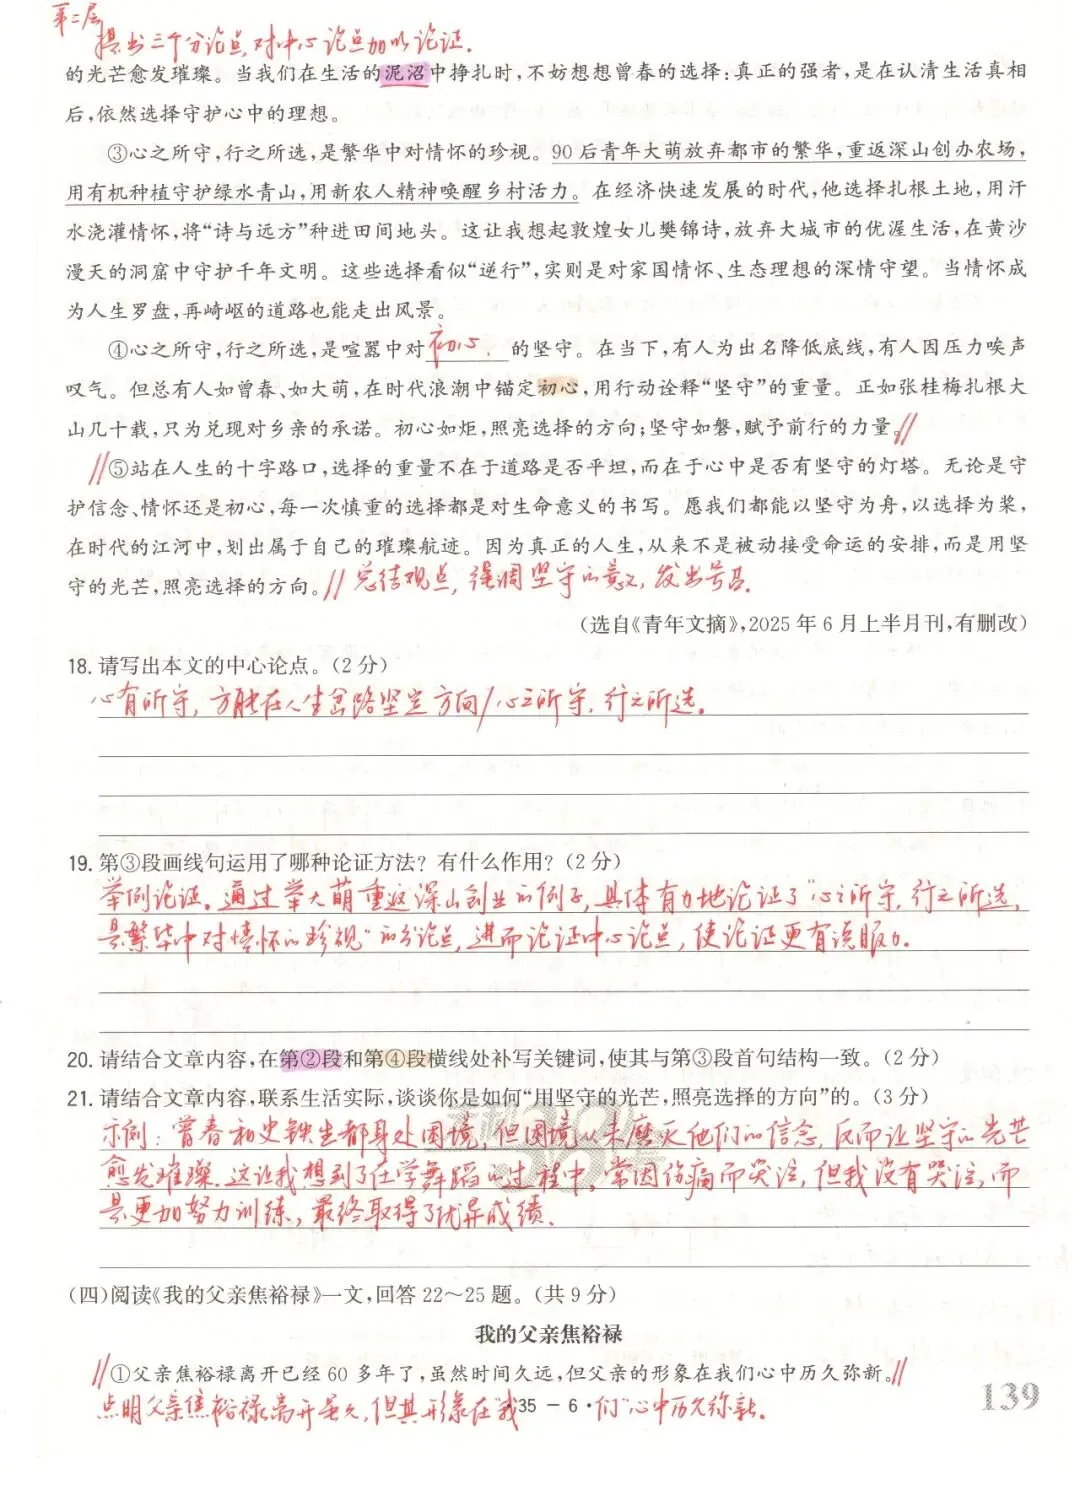 第二层
提出三个分论点,对中心论点加以论证.
的光芒愈发璀璨。当我们在生活的泥沼中挣扎时,不妨想想曾春的选择:真正的强者,是在认清生活真相
后,依然选择守护心中的理想。
③心之所守,行之所选,是繁华中对情怀的珍视。90后青年大萌放弃都市的繁华,重返深山创办农场,
用有机种植守护绿水青山,用新农人精神唤醒乡村活力。在经济快速发展的时代,他选择扎根土地,用汗
水浇灌情怀,将“诗与远方”种进田间地头。这让我想起敦煌女儿樊锦诗,放弃大城市的优渥生活,在黄沙
漫天的洞窟中守护千年文明。这些选择看似“逆行”,实则是对家国情怀、生态理想的深情守望。当情怀成
为人生罗盘,再崎岖的道路也能走出风景。
④心之所守,行之所选,是喧嚣中对初心.的坚守。在当下,有人为出名降低底线,有人因压力唉声
叹气。但总有人如曾春、如大萌,在时代浪潮中锚定初心,用行动诠释“坚守”的重量。正如张桂梅扎根大
山几十载,只为兑现对乡亲的承诺。初心如炬,照亮选择的方向;坚守如磐,赋予前行的力量。//
//⑤站在人生的十字路口,选择的重量不在于道路是否平坦,而在于心中是否有坚守的灯塔。无论是守
护信念、情怀还是初心,每一次慎重的选择都是对生命意义的书写。愿我们都能以坚守为舟,以选择为桨,
在时代的江河中,划出属于自己的璀璨航迹。因为真正的人生,从来不是被动接受命运的安排,而是用坚
守的光芒,照亮选择的方向。//总结观点,强调坚守的意义,发出号召.
(选自《青年文摘》,2025年6月上半月刊,有删改)
18. 请写出本文的中心论点。(2分)
心有所守,方能在人生岔路坚定方向/心之所守,行之所选。
19. 第③段画线句运用了哪种论证方法?有什么作用?(2分)
举例论证。通过举大萌重返深山创业的例子,具体有力地论证了“心之所守,行之所选,
是繁华中对情怀的珍视”的分论点,进而论证中心论点,使论证更有说服力.
20. 请结合文章内容,在第②段和第④段横线处补写关键词,使其与第③段首句结构一致。(2分)
21. 请结合文章内容,联系生活实际,谈谈你是如何“用坚守的光芒,照亮选择的方向”的。(3分)
示例:曾春和史铁生都身处困境,但困境从未磨灭他们的信念,反而让坚守的光芒
愈发璀璨.这让我想到了在学舞蹈的过程中,常因伤痛而哭泣,但我没有哭泣,而
是更加努力训练,最终取得了优异成绩.
(四)阅读《我的父亲焦裕禄》一文,回答22~25题。(共9分)
我的父亲焦裕禄
//①父亲焦裕禄离开已经60多年了,虽然时间久远,但父亲的形象在我们心中历久弥新。//
点明父亲焦裕禄离开虽久,但其形象在“我们”心中历久弥新.
35 - 6 ·
139